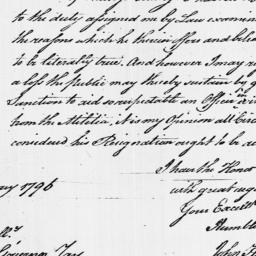 to the duty assigned me by Law examine
the reasons which he therein offers and belee
to be literally true. And however I may re
a loss the public may thereby sustain by g
Sanction to aid so respectable an Officer in
from the Militia, it is my Opinion all Circ
considered his Resignation ought to be ac
I have the Honor
ary 1796
with great resp
Your Excell
Humble
Governor Jay
John